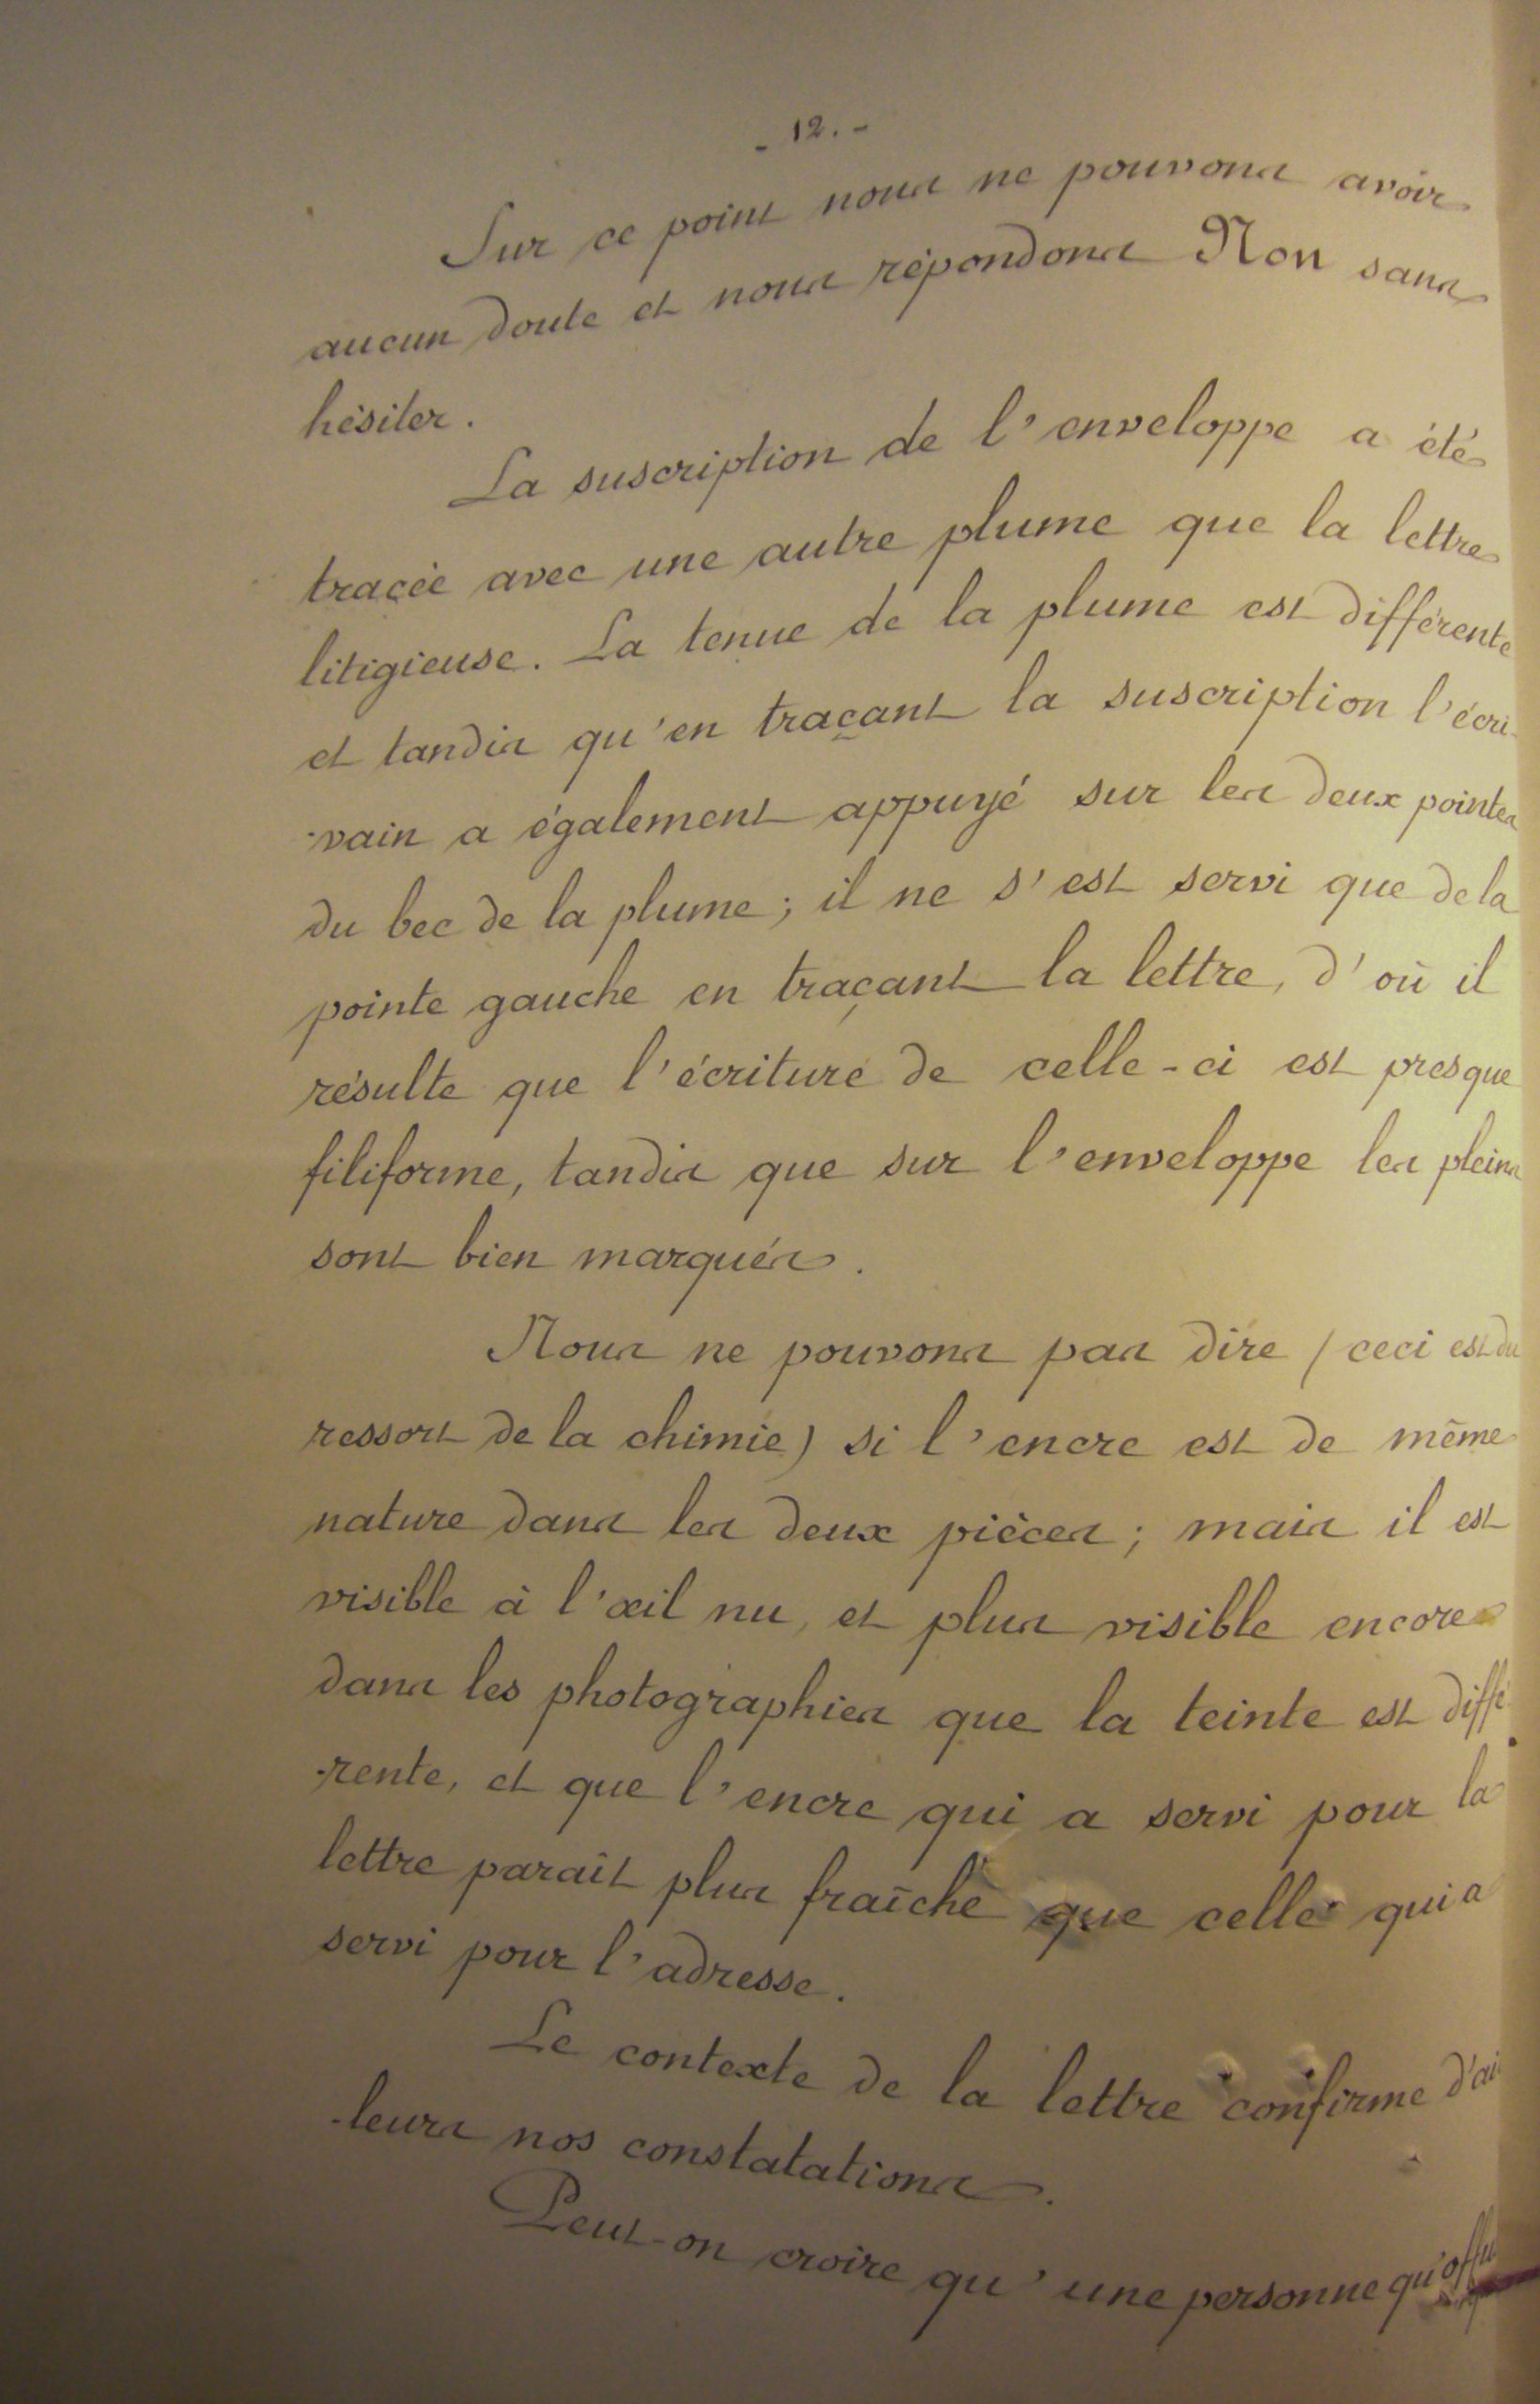 - 12. -
Sur ce point nous ne pouvons avoir
aucun doute et nous répondons Non sans
hésiter.
La suscription de l'enveloppe a été
tracée avec une autre plume que la lettre
litigieuse. La tenue de la plume est différente
et tandis qu'en traçant la suscription l'écri-
-vain a également appuyé sur les deux pointes
du bec de la plume; il ne s'est servi que de la
pointe gauche en traçant la lettre, d'où il
résulte que l'écriture de celle-ci est presque
filiforme, tandis que sur l'enveloppe les pleins
sont bien marqués.
Nous ne pouvons pas dire (ceci est du
ressort de la chimie) si l'encre est de même
nature dans les deux pièces; mais il est
visible à l'œil nu, et plus visible encore
dans les photographies que la teinte est diffé
-rente, et que l'encre qui a servi pour la
lettre paraît plus fraîche que celle qui a
servi pour l'adresse.
Le contexte de la lettre confirme d'ail
-leurs nos constatations.
Peut-on croire qu'une personne